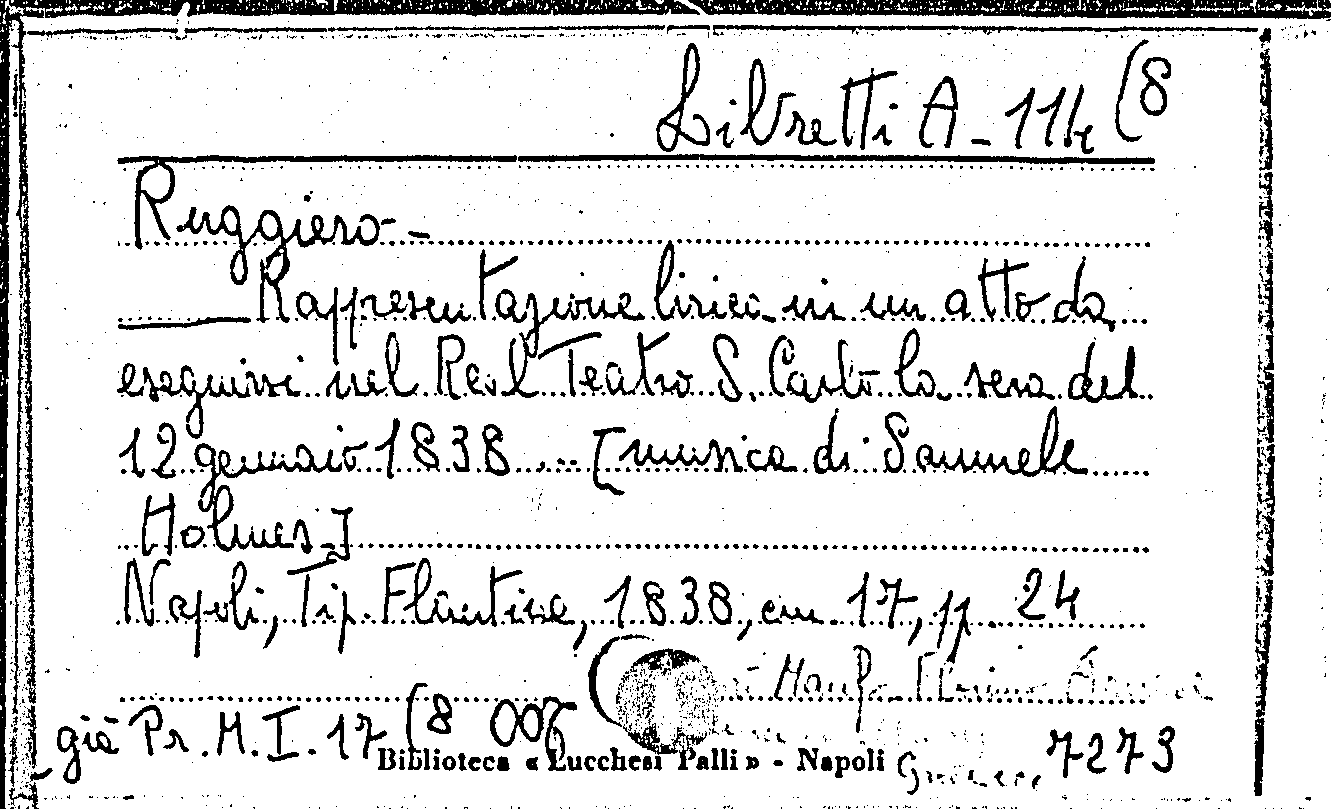 Libretti A - 114 (8
Ruggiero -
Rappresentazione lirica in un atto da
eseguirsi nel Real Teatro S. Carlo la sera del
12 gennaio 1838 ... [musica di Samuele
Holmes.]
Napoli, Tip. Flautina, 1838, cm. 17, pp. 24
già Pr. M. I. 17 (8
Biblioteca « Lucchesi Palli » - Napoli
7273